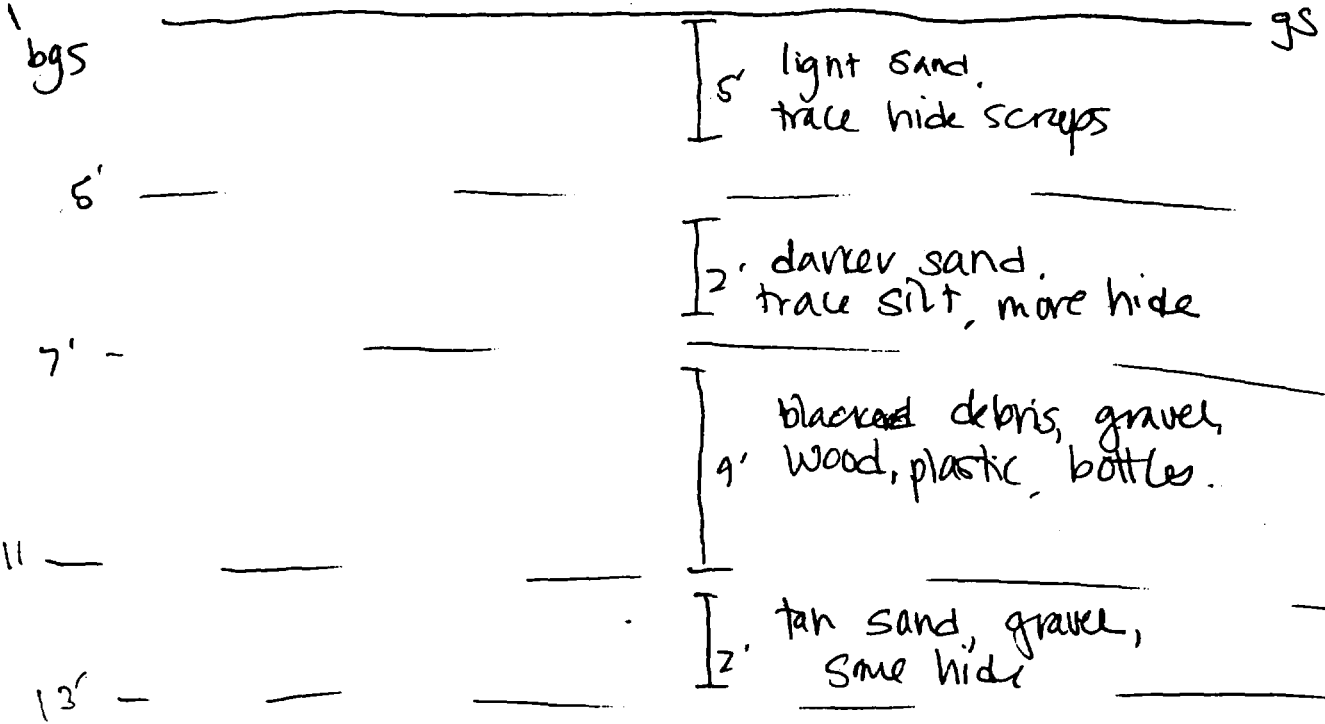 ' bgs
gs
5' light sand.
trace hide scraps
5'
2' darker sand.
trace silt, more hide
7'
debris, gravel,
4' wood, plastic, bottles.
11
2' tan sand, gravel,
some hide
13'